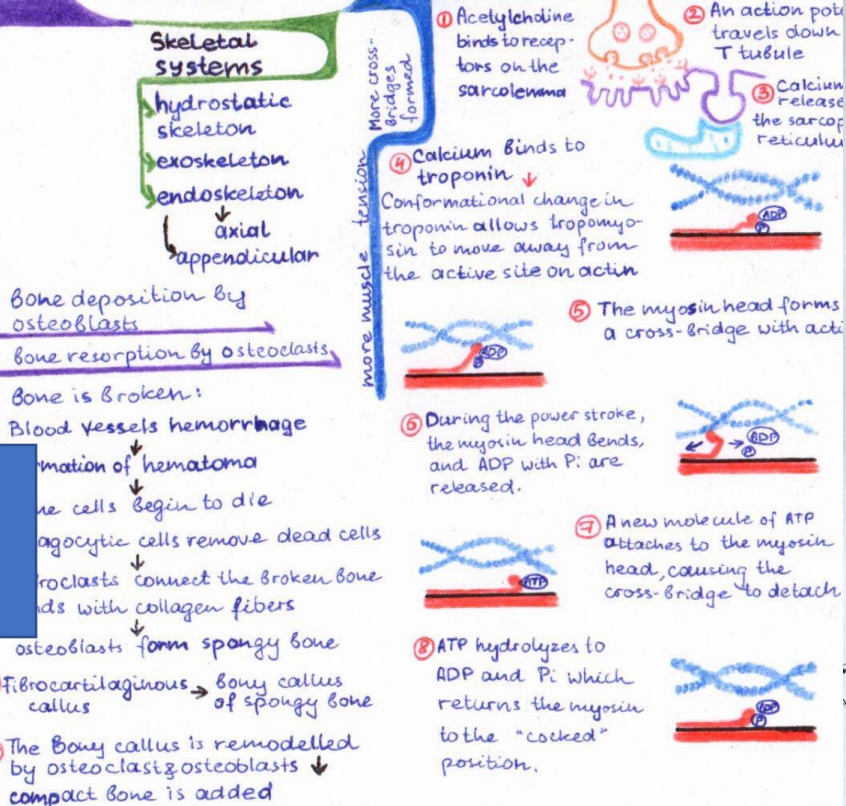 Skeletal
systems
hydrostatic
skeleton
exoskeleton
endoskeleton
axial
appendicular
Bone deposition by
osteoblasts
Bone resorption by osteoclasts
Bone is Broken:
Blood vessels hemorrhage
mation of hematoma
cells Begin to die
agocytic cells remove dead cells
roclasts connect the Broken Bone
ds with collagen fibers
osteoblasts form spongy bone
Fibrocartilaginous → Bony callus
callus of spongy Bone
The Bony callus is remodelled
by osteoclast & osteoblasts
compact Bone is added
More cross-
Bridges
formed
more muscle tension
① Acetylcholine
binds to recep-
tors on the
sarcolemma
② An action pot
travels down
T tubule
③ Calcium
release
the sarcop
reticulu
④ Calcium Binds to
troponin
Conformational change in
troponin allows tropomyo-
sin to move away from
the active site on actin
ADP
P
⑤ The myosin head forms
a cross-Bridge with acti
ADP
P
⑥ During the power stroke,
the myosin head Bends,
and ADP with Pi are
released.
ADP
P
⑦ A new molecule of ATP
attaches to the myosin
head, causing the
cross-Bridge to detach
ATP
⑧ ATP hydrolyzes to
ADP and Pi which
returns the myosin
to the "cocked"
position.
ADP
P